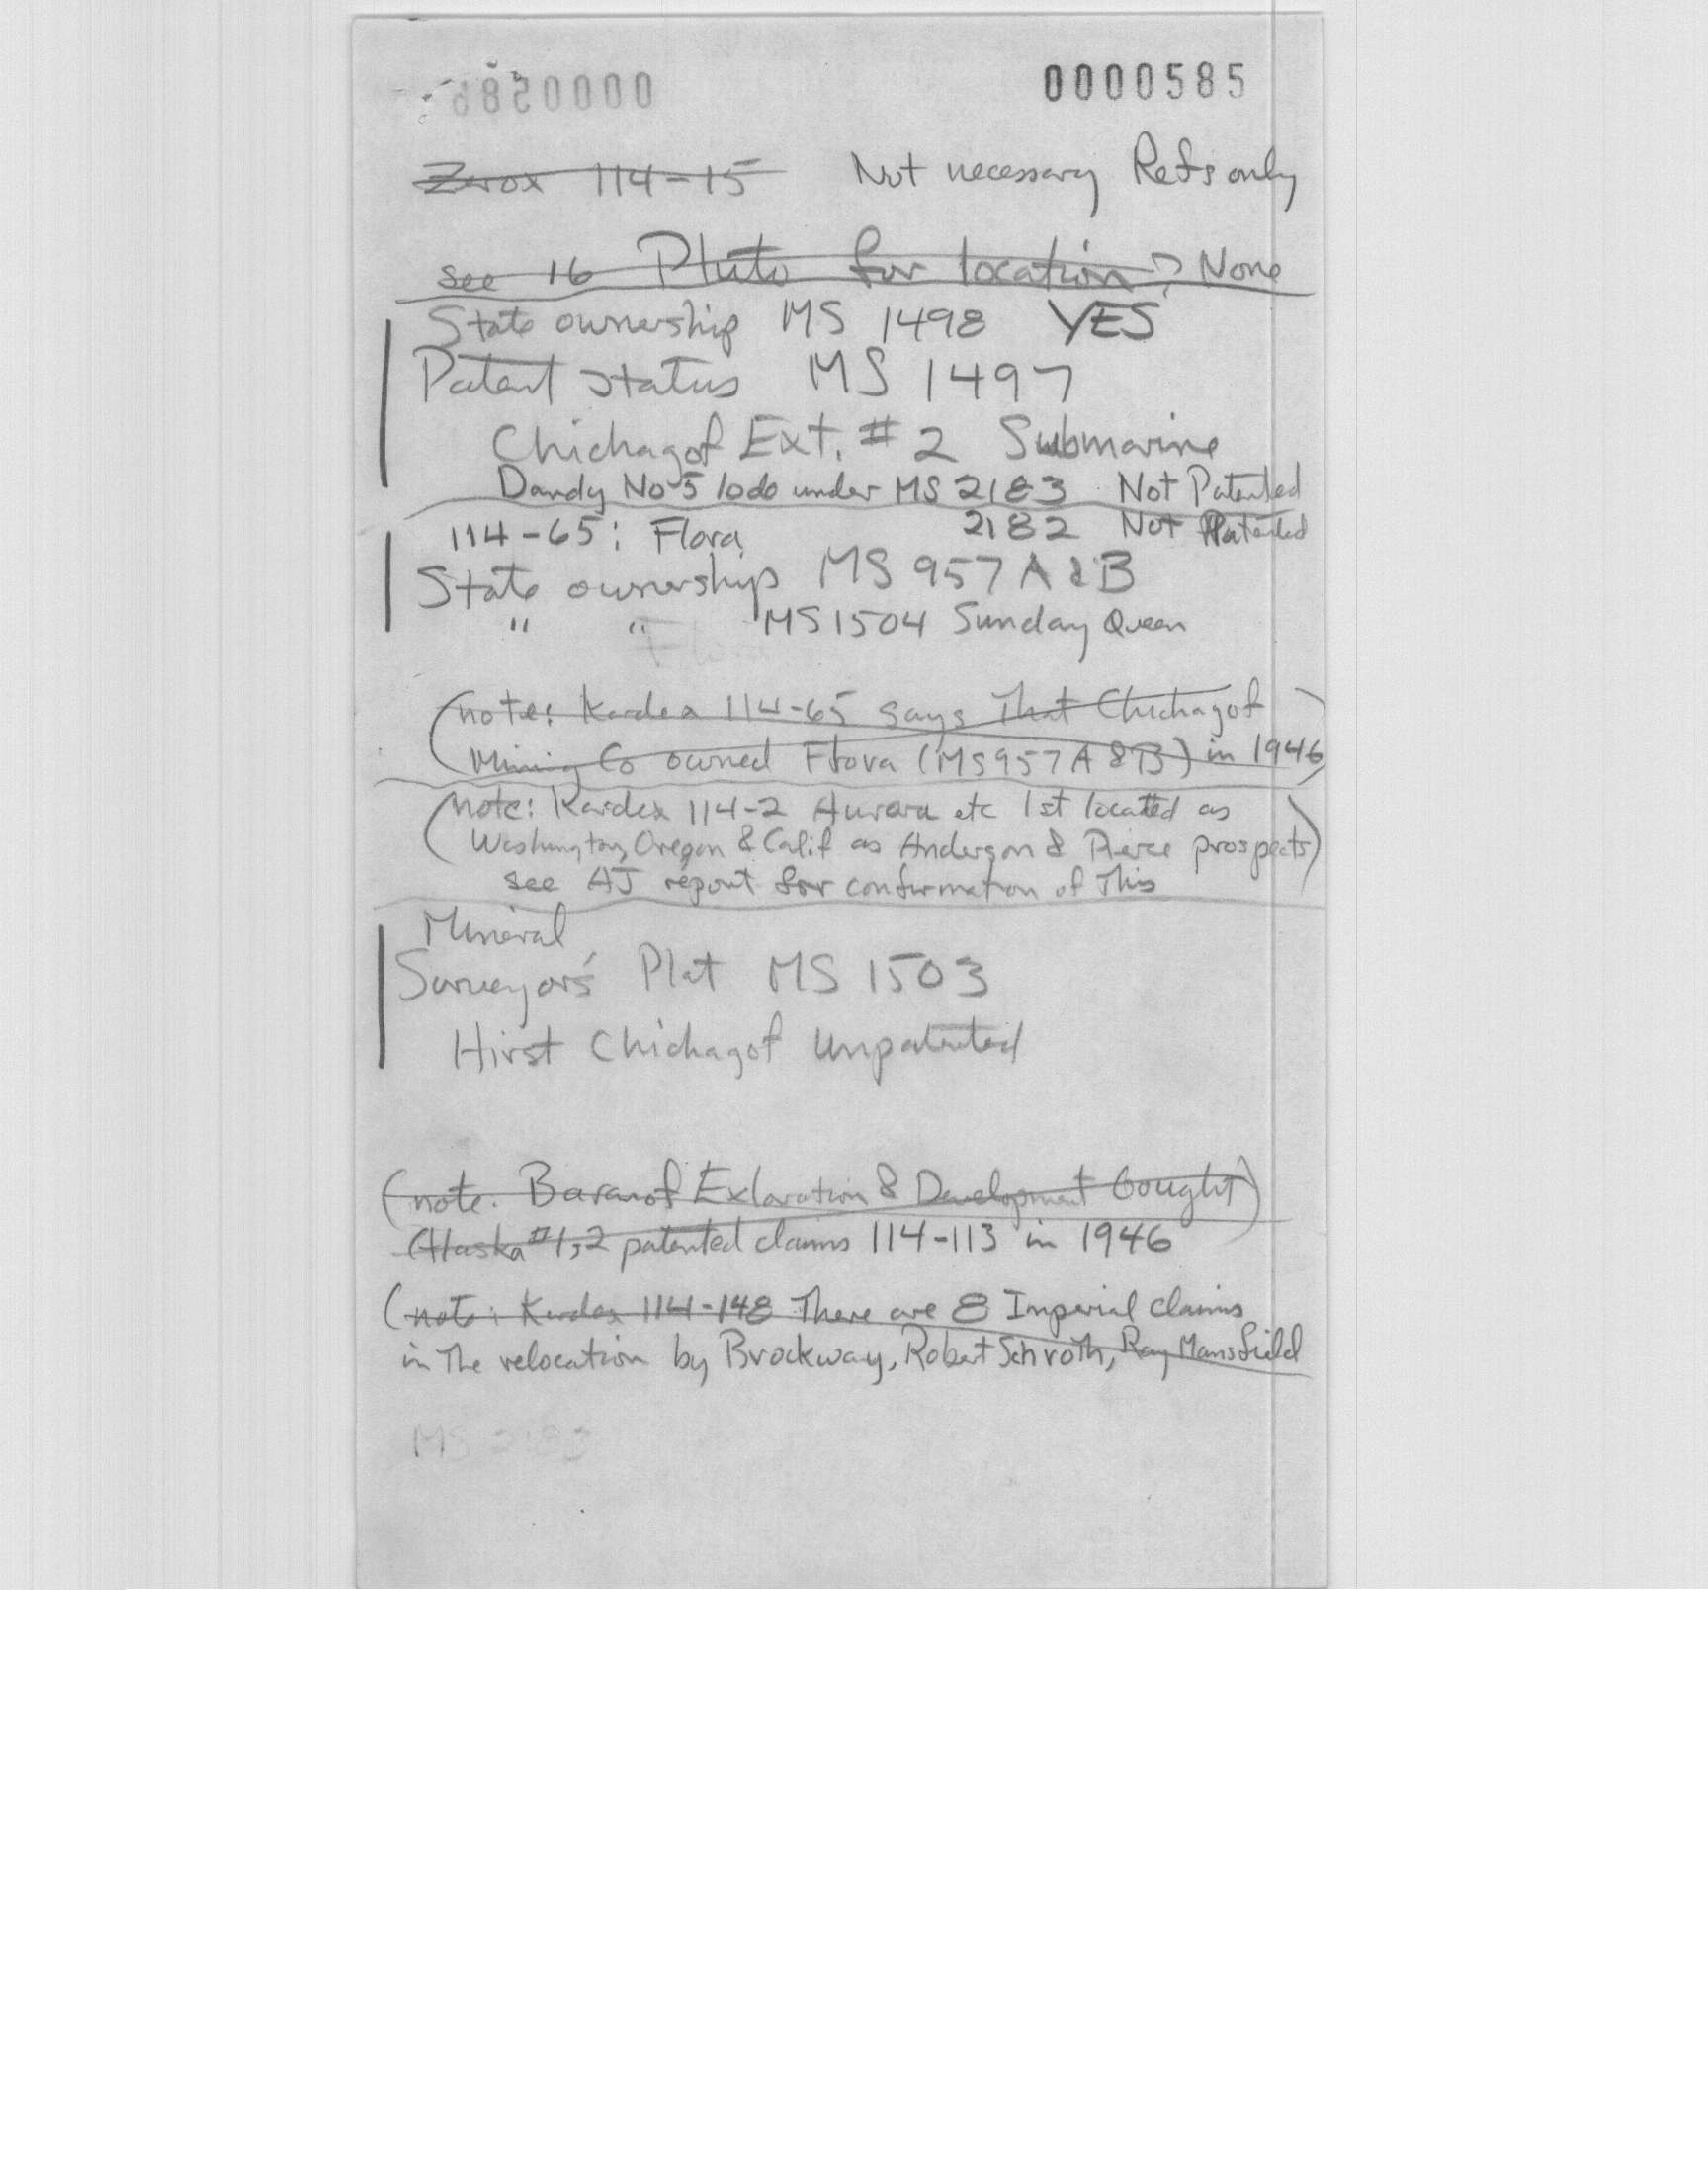 0000585
Zerox 114-15 Not necessary Refs only
see 16 Pluto for location? None
State ownership MS 1498 YES
Patent status MS 1497
Chichagof Ext. # 2 Submarine
Dandy No 5 lode under MS 2183 Not Patented
114-65: Flora 2182 Not Patented
State ownership MS 957 A & B
" " MS 1504 Sunday Queen
(note: Kardex 114-65 says That Chichagof
Mining Co owned Flora (MS 957 A & B) in 1946)
(note: Kardex 114-2 Aurora etc 1st located as
Washington, Oregon & Calif as Anderson & Pierce prospects)
see AJ report for confirmation of This
Mineral
Surveyor's Plat MS 1503
Hirst Chichagof Unpatented
(note: Baranof Exloration & Development bought)
(Alaska #1,2 patented claims 114-113 in 1946
(note: Kardex 114-148 There are 8 Imperial claims
in The relocation by Brockway, Robert Schroth, Ray Mansfield
MS 2183